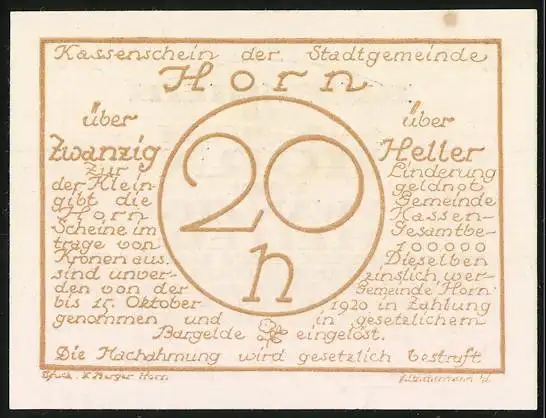 Kassenschein der Stadtgemeinde
Horn
über über
Zwanzig 20 Heller
zur Linderung
der Klein geldnot
gibt die Gemeinde
Horn Kassen-
Scheine im Gesamtbe-
trage von 100.000
Kronen aus. Dieselben
sind unver- zinslich wer-
den von der Gemeinde Horn
bis 15. Oktober 1920 in Zahlung
h
genommen und in gesetzlichem
Bargelde eingelöst.
Die Nachahmung wird gesetzlich bestraft
Berger Horn